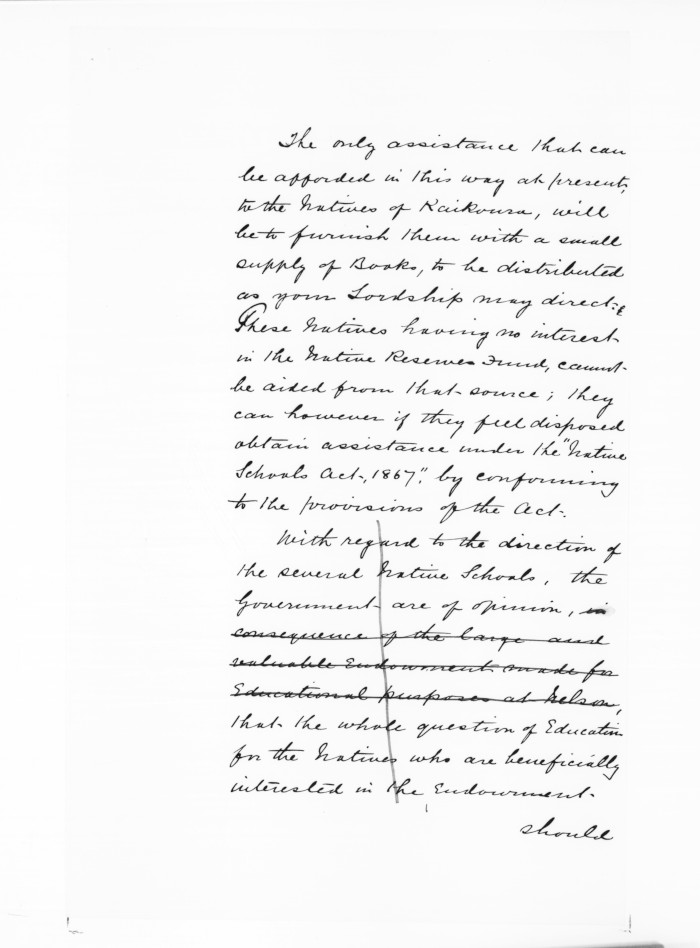 The only assistance that can
be afforded in this way at present,
to the Natives of Kaikoura, will
be to furnish them with a small
supply of Books, to be distributed
as your Lordship may direct.
These Natives having no interest
in the Native Reserves Fund, cannot
be aided from that source; they
can however if they feel disposed
obtain assistance under the "Native
Schools Act, 1867", by conforming
to the provisions of the Act.
With regard to the direction of
the several Native Schools, the
Government are of opinion, in
consequence of the large and
valuable Endowment made for
Educational purposes at Nelson,
that the whole question of Education
for the Natives who are beneficially
interested in the Endowment
should